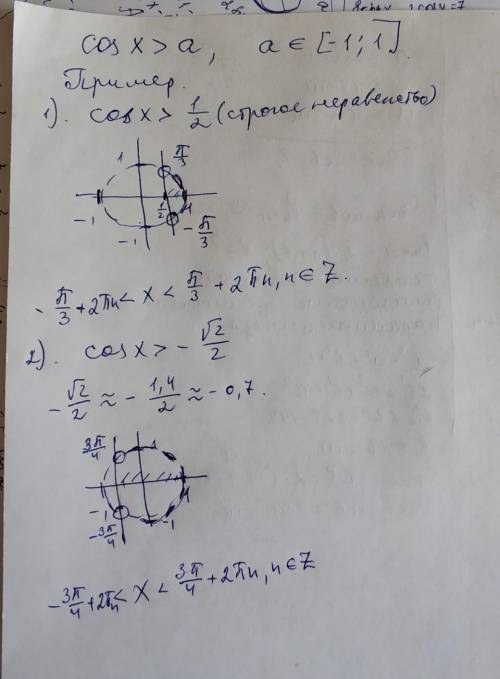 cos x > a, a ∈ [-1; 1].
Пример.
1). cos x > 1/2 (строгое неравенство)
1 π/3
-1 1/2 1
-1 -π/3
-π/3 + 2πn < x < π/3 + 2πn, n ∈ Z.
2). cos x > -√2/2
-√2/2 ≈ -1,4/2 ≈ -0,7.
3π/4 1
-1 1
-3π/4 -1
-3π/4 + 2πn < x < 3π/4 + 2πn, n ∈ Z